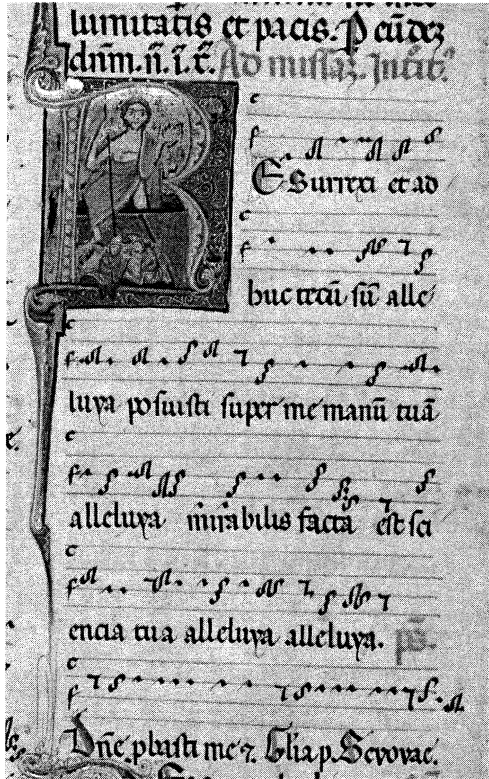 lumitatis et pacis. P eūdez
dn̄m. n̄. i. t̄. Ad missaz. Introit'.
RESurrexi et ad
huc tecū sū alle
luya posuisti super me manū tuā
alleluya mirabilis facta est sci
encia tua alleluya alleluya. ps̄.
Dn̄e pbasti me ⁊. Glīa p. Sevovae.